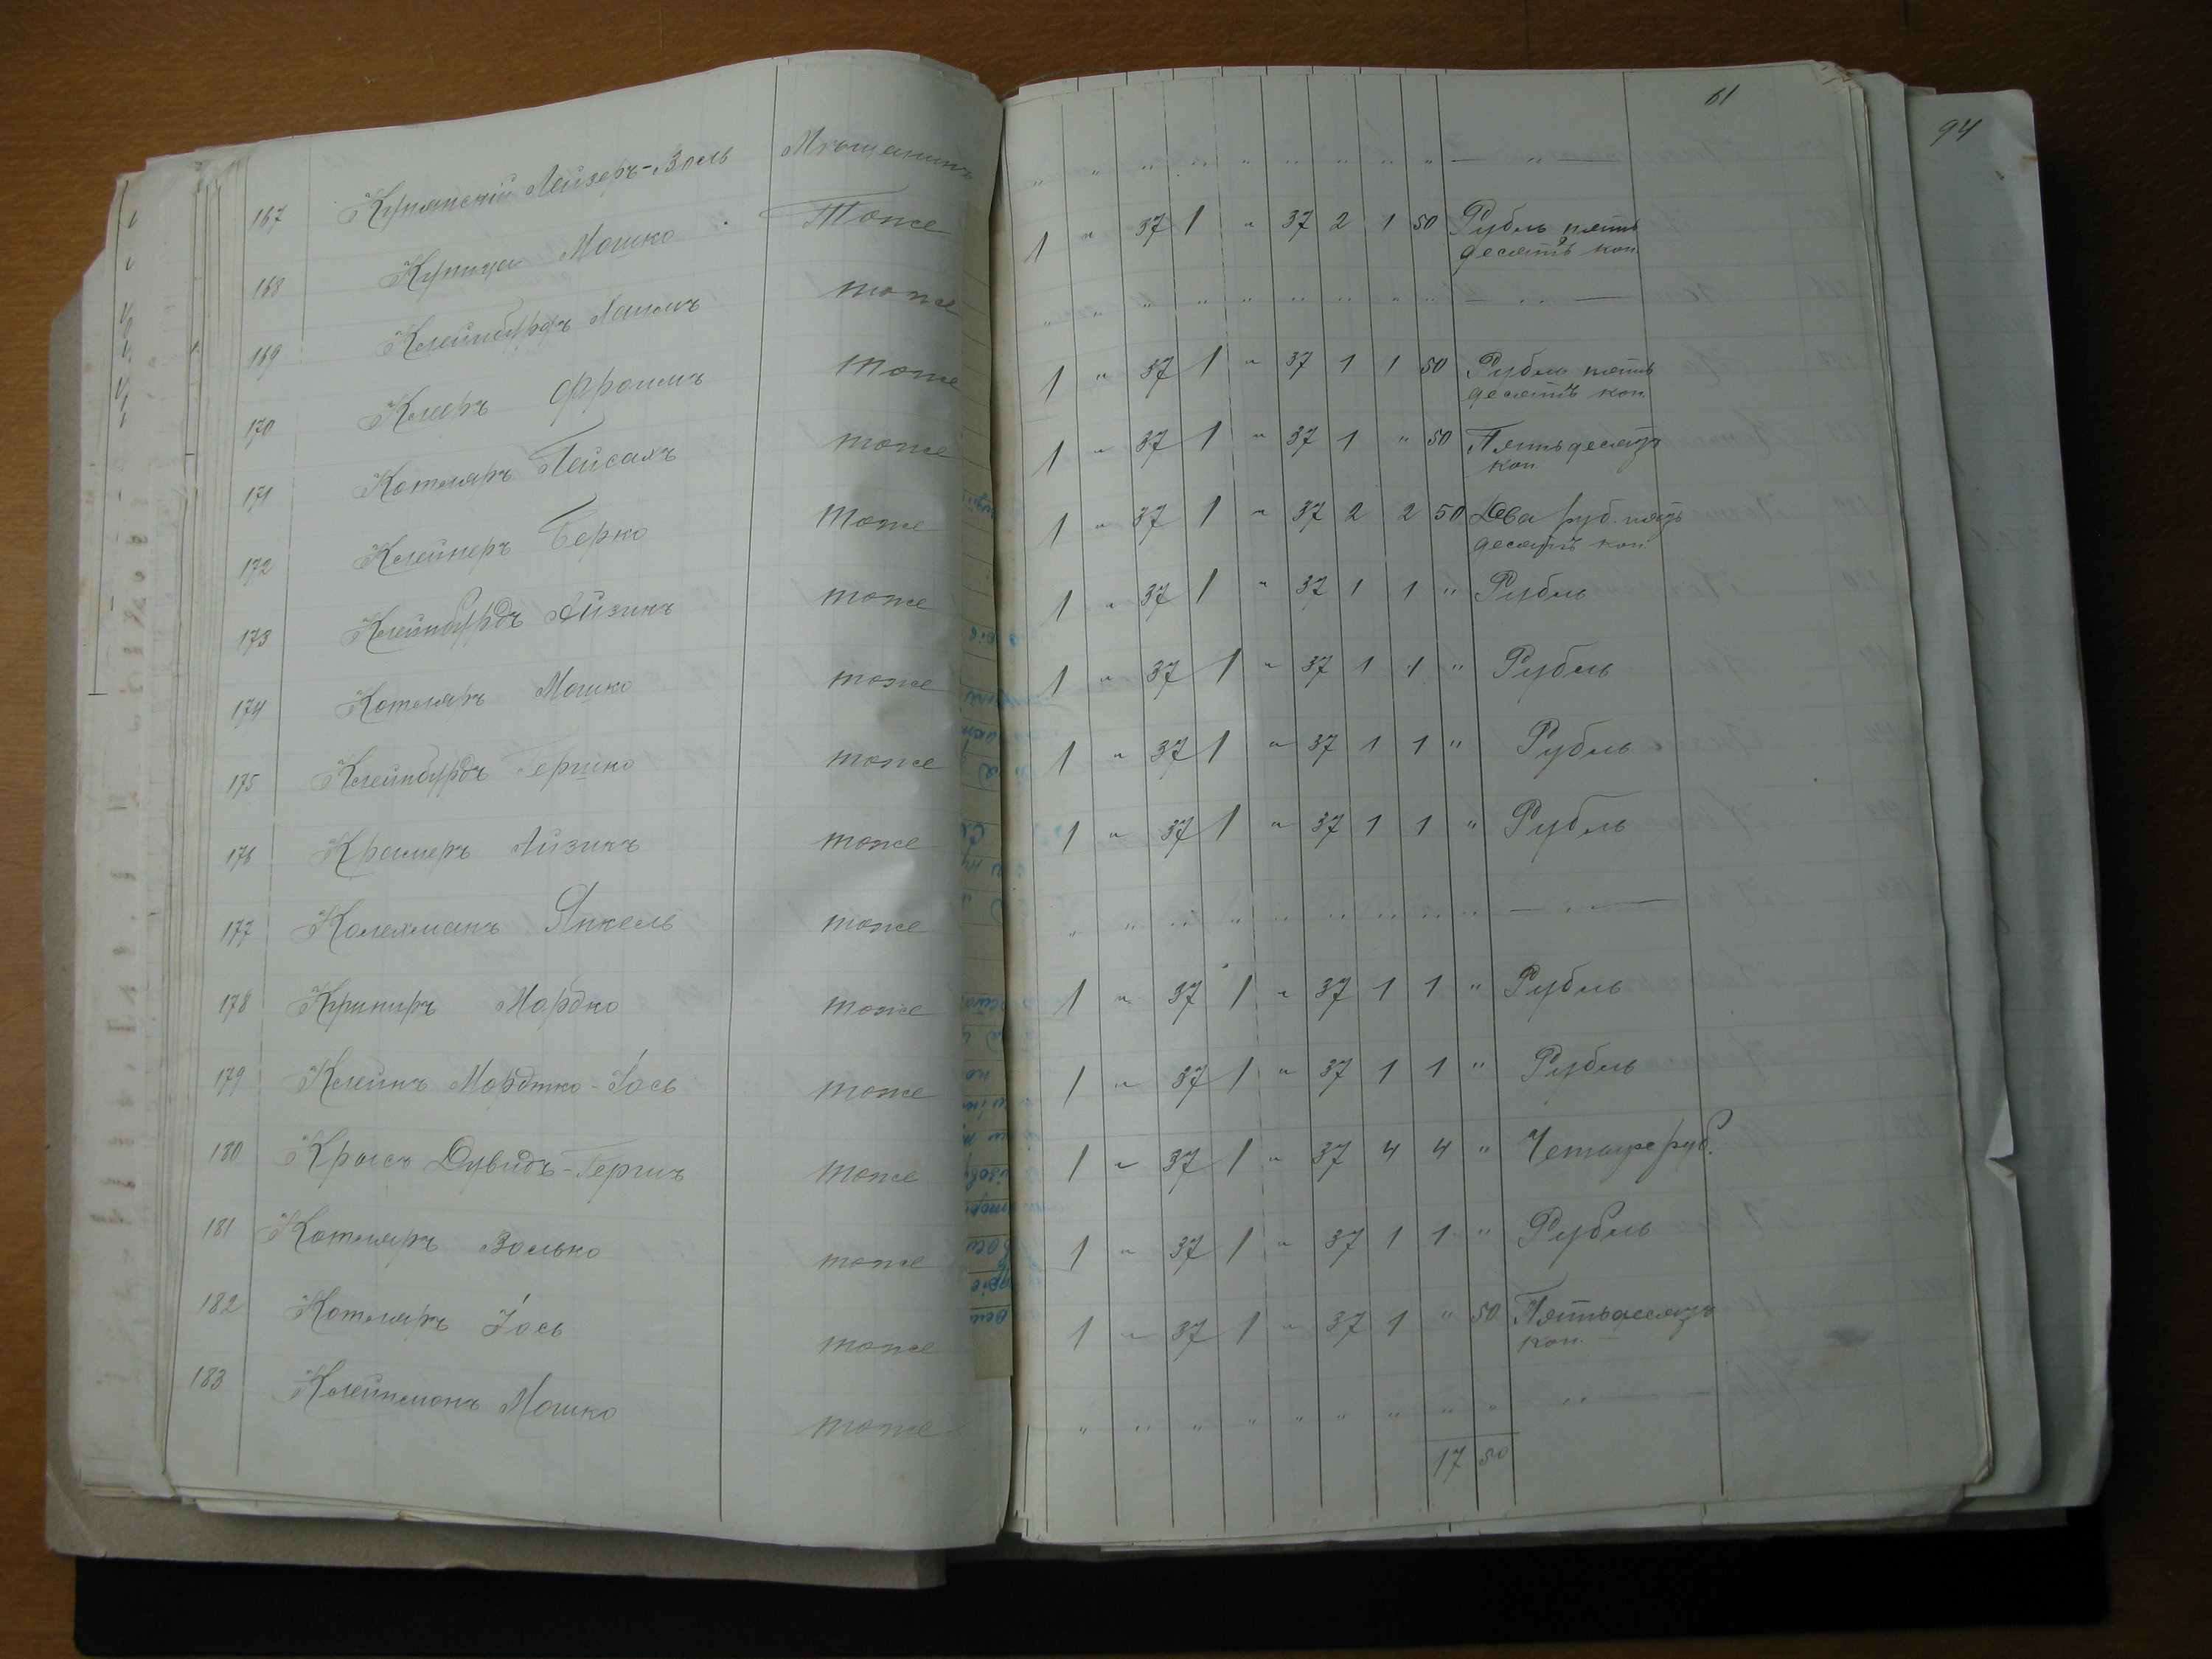 61
94
167 Купянскій Лейзеръ-Зось Мѣщанинъ " " " " " " " " " — " —
168 Купица Мошко Тоже 1 " 37 1 " 37 2 1 50 Рубль пять
десятъ коп
169 Клейнбурдъ Хаимъ тоже " " " " " " " " " — " —
170 Клеръ Фроимъ тоже 1 " 37 1 " 37 1 1 50 Рубль пять
десятъ коп
171 Котляръ Пейсахъ тоже 1 " 37 1 " 37 1 " 50 Пятьдесятъ
коп.
172 Клейнеръ Берко тоже 1 " 37 1 " 37 2 2 50 Два руб. пять
десятъ коп
173 Клейнбурдъ Айзикъ тоже 1 " 37 1 " 37 1 1 " Рубль
174 Котляръ Мошко тоже 1 " 37 1 " 37 1 1 " Рубль
175 Клейнбурдъ Гершко тоже 1 " 37 1 " 37 1 1 " Рубль
176 Крамеръ Айзикъ тоже 1 " 37 1 " 37 1 1 " Рубль
177 Колехманъ Янкель тоже " " " " " " " " " — " —
178 Мордко тоже 1 " 37 1 " 37 1 1 " Рубль
179 Клейнъ Мордтко-Іось тоже 1 " 37 1 " 37 1 1 " Рубль
180 Крысъ Дувидъ-Гершъ тоже 1 " 37 1 " 37 4 4 " Четыре руб.
181 Котляръ Волько тоже 1 " 37 1 " 37 1 1 " Рубль
182 Котляръ Іось тоже 1 " 37 1 " 37 1 " 50 Пятьдесятъ
коп.
183 Клейтманъ Мошко тоже " " " " " " " " " — " —
17 50